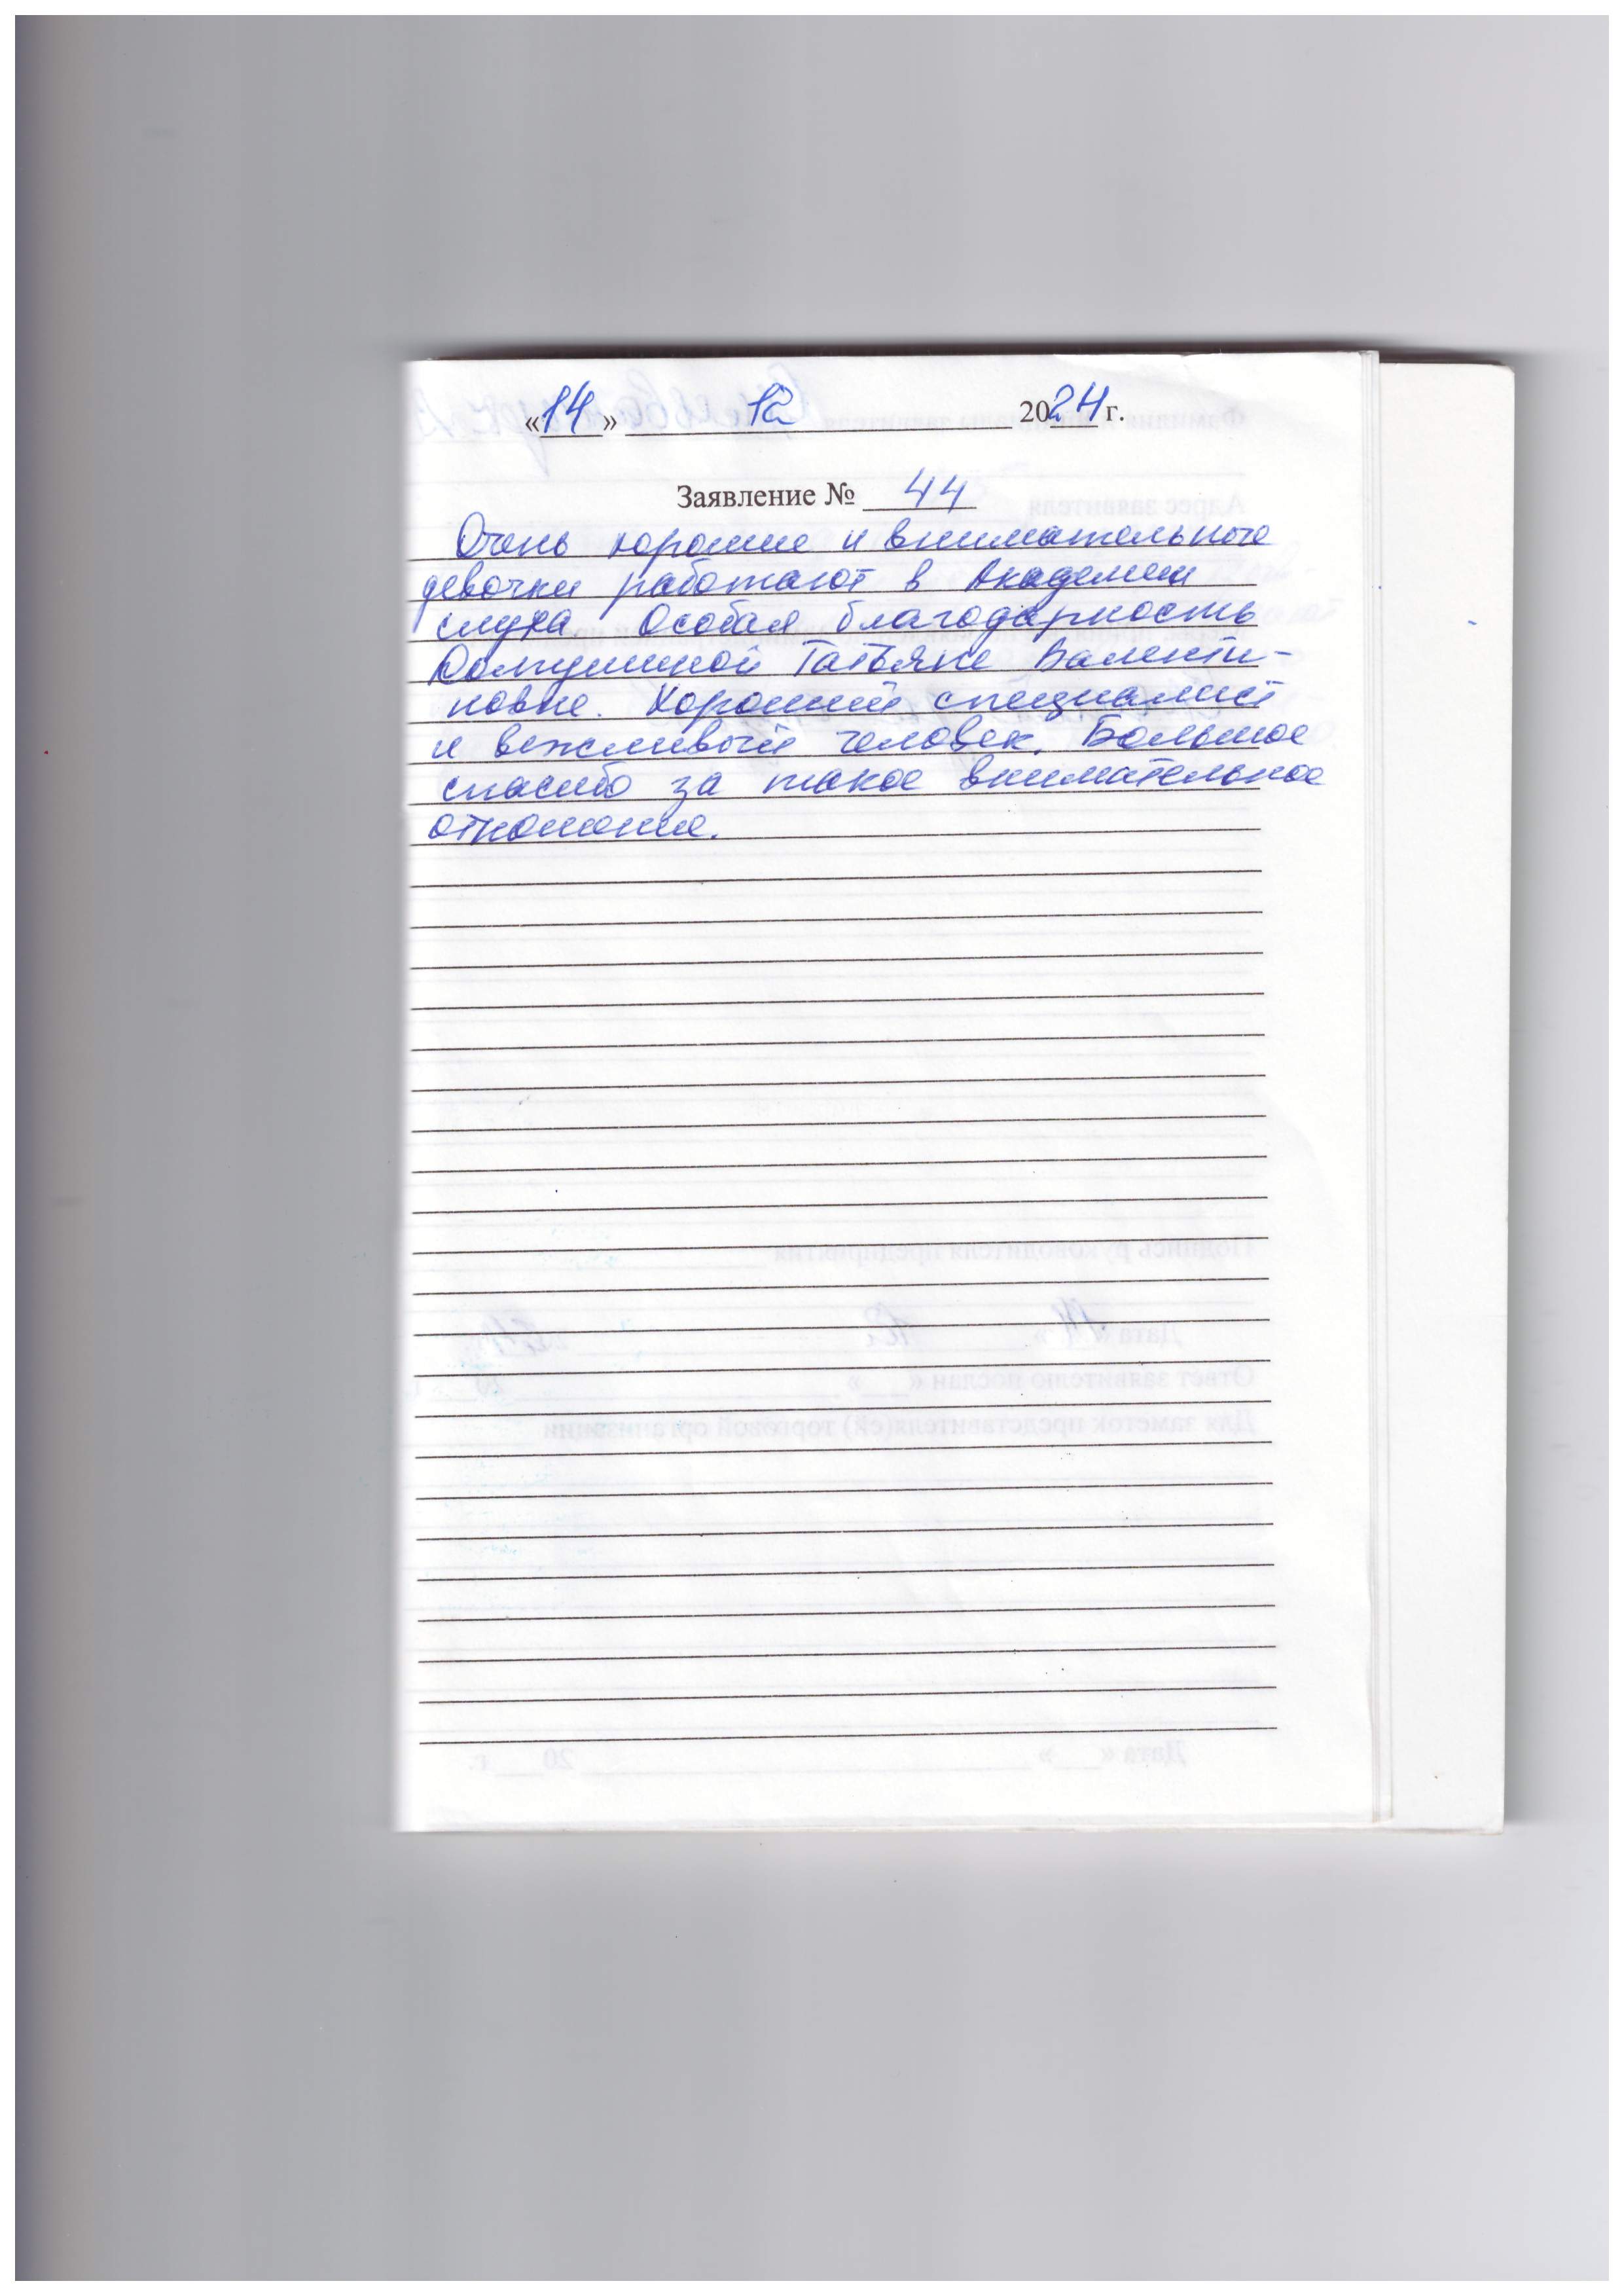 «14» 12 2024 г.
Заявление № 44
Очень хорошие и внимательные
девочки работают в Академии
слуха Особая благодарность
Татьяне Валенти-
новне. Хороший специалист
и вежливый человек. Большое
спасибо за такое внимательное
отношение.